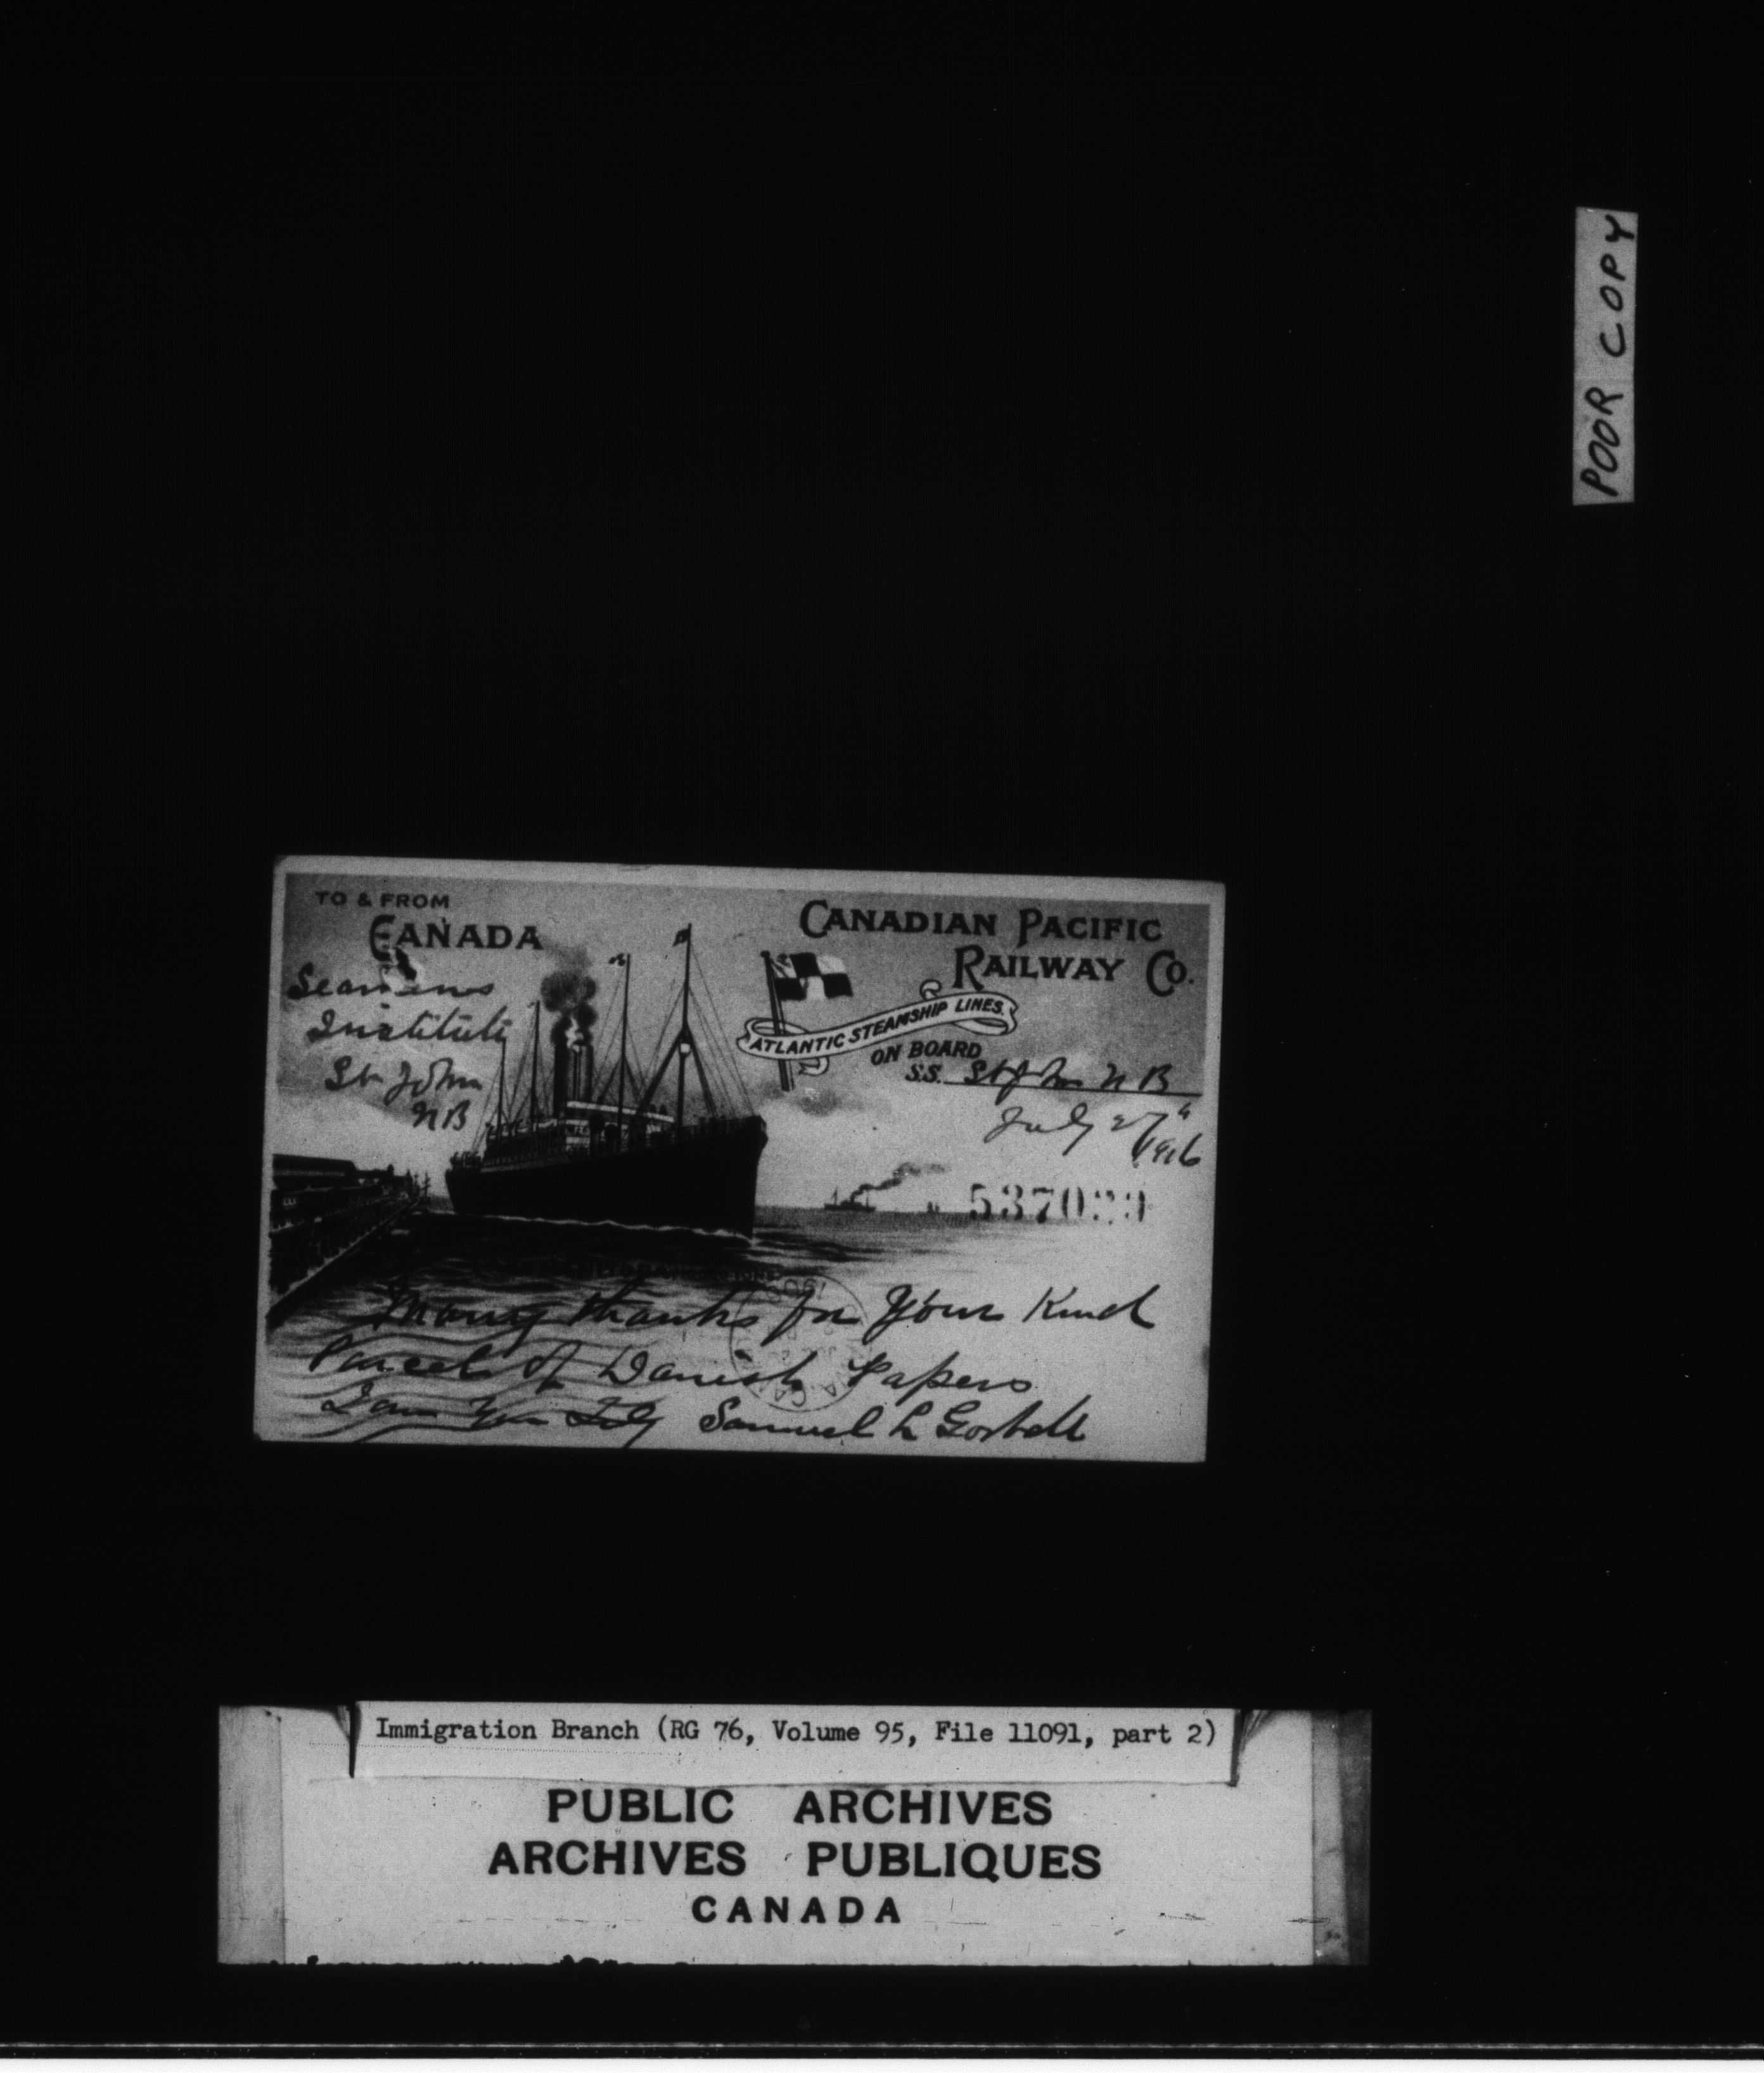 POOR COPY
TO & FROM
CANADA
CANADIAN PACIFIC
RAILWAY CO.
ATLANTIC STEAMSHIP LINES.
ON BOARD
S.S. St John N B
July 27"
Seamens
Institute
St John
NB
Many thanks for your Kind
Parcel of Danish Papers
I am Samuel L Gorbell
Immigration Branch (RG 76, Volume 95, File 11091, part 2)
PUBLIC ARCHIVES
ARCHIVES PUBLIQUES
CANADA